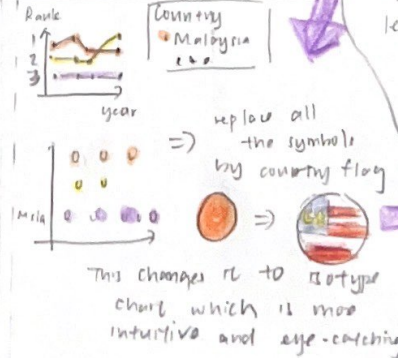 Rank
1
2
3
year
Country
Malaysia
replace all
the symbols
by country flag
=>
=>
This changes it to isotype
chart which is more
intuitive and eye-catching